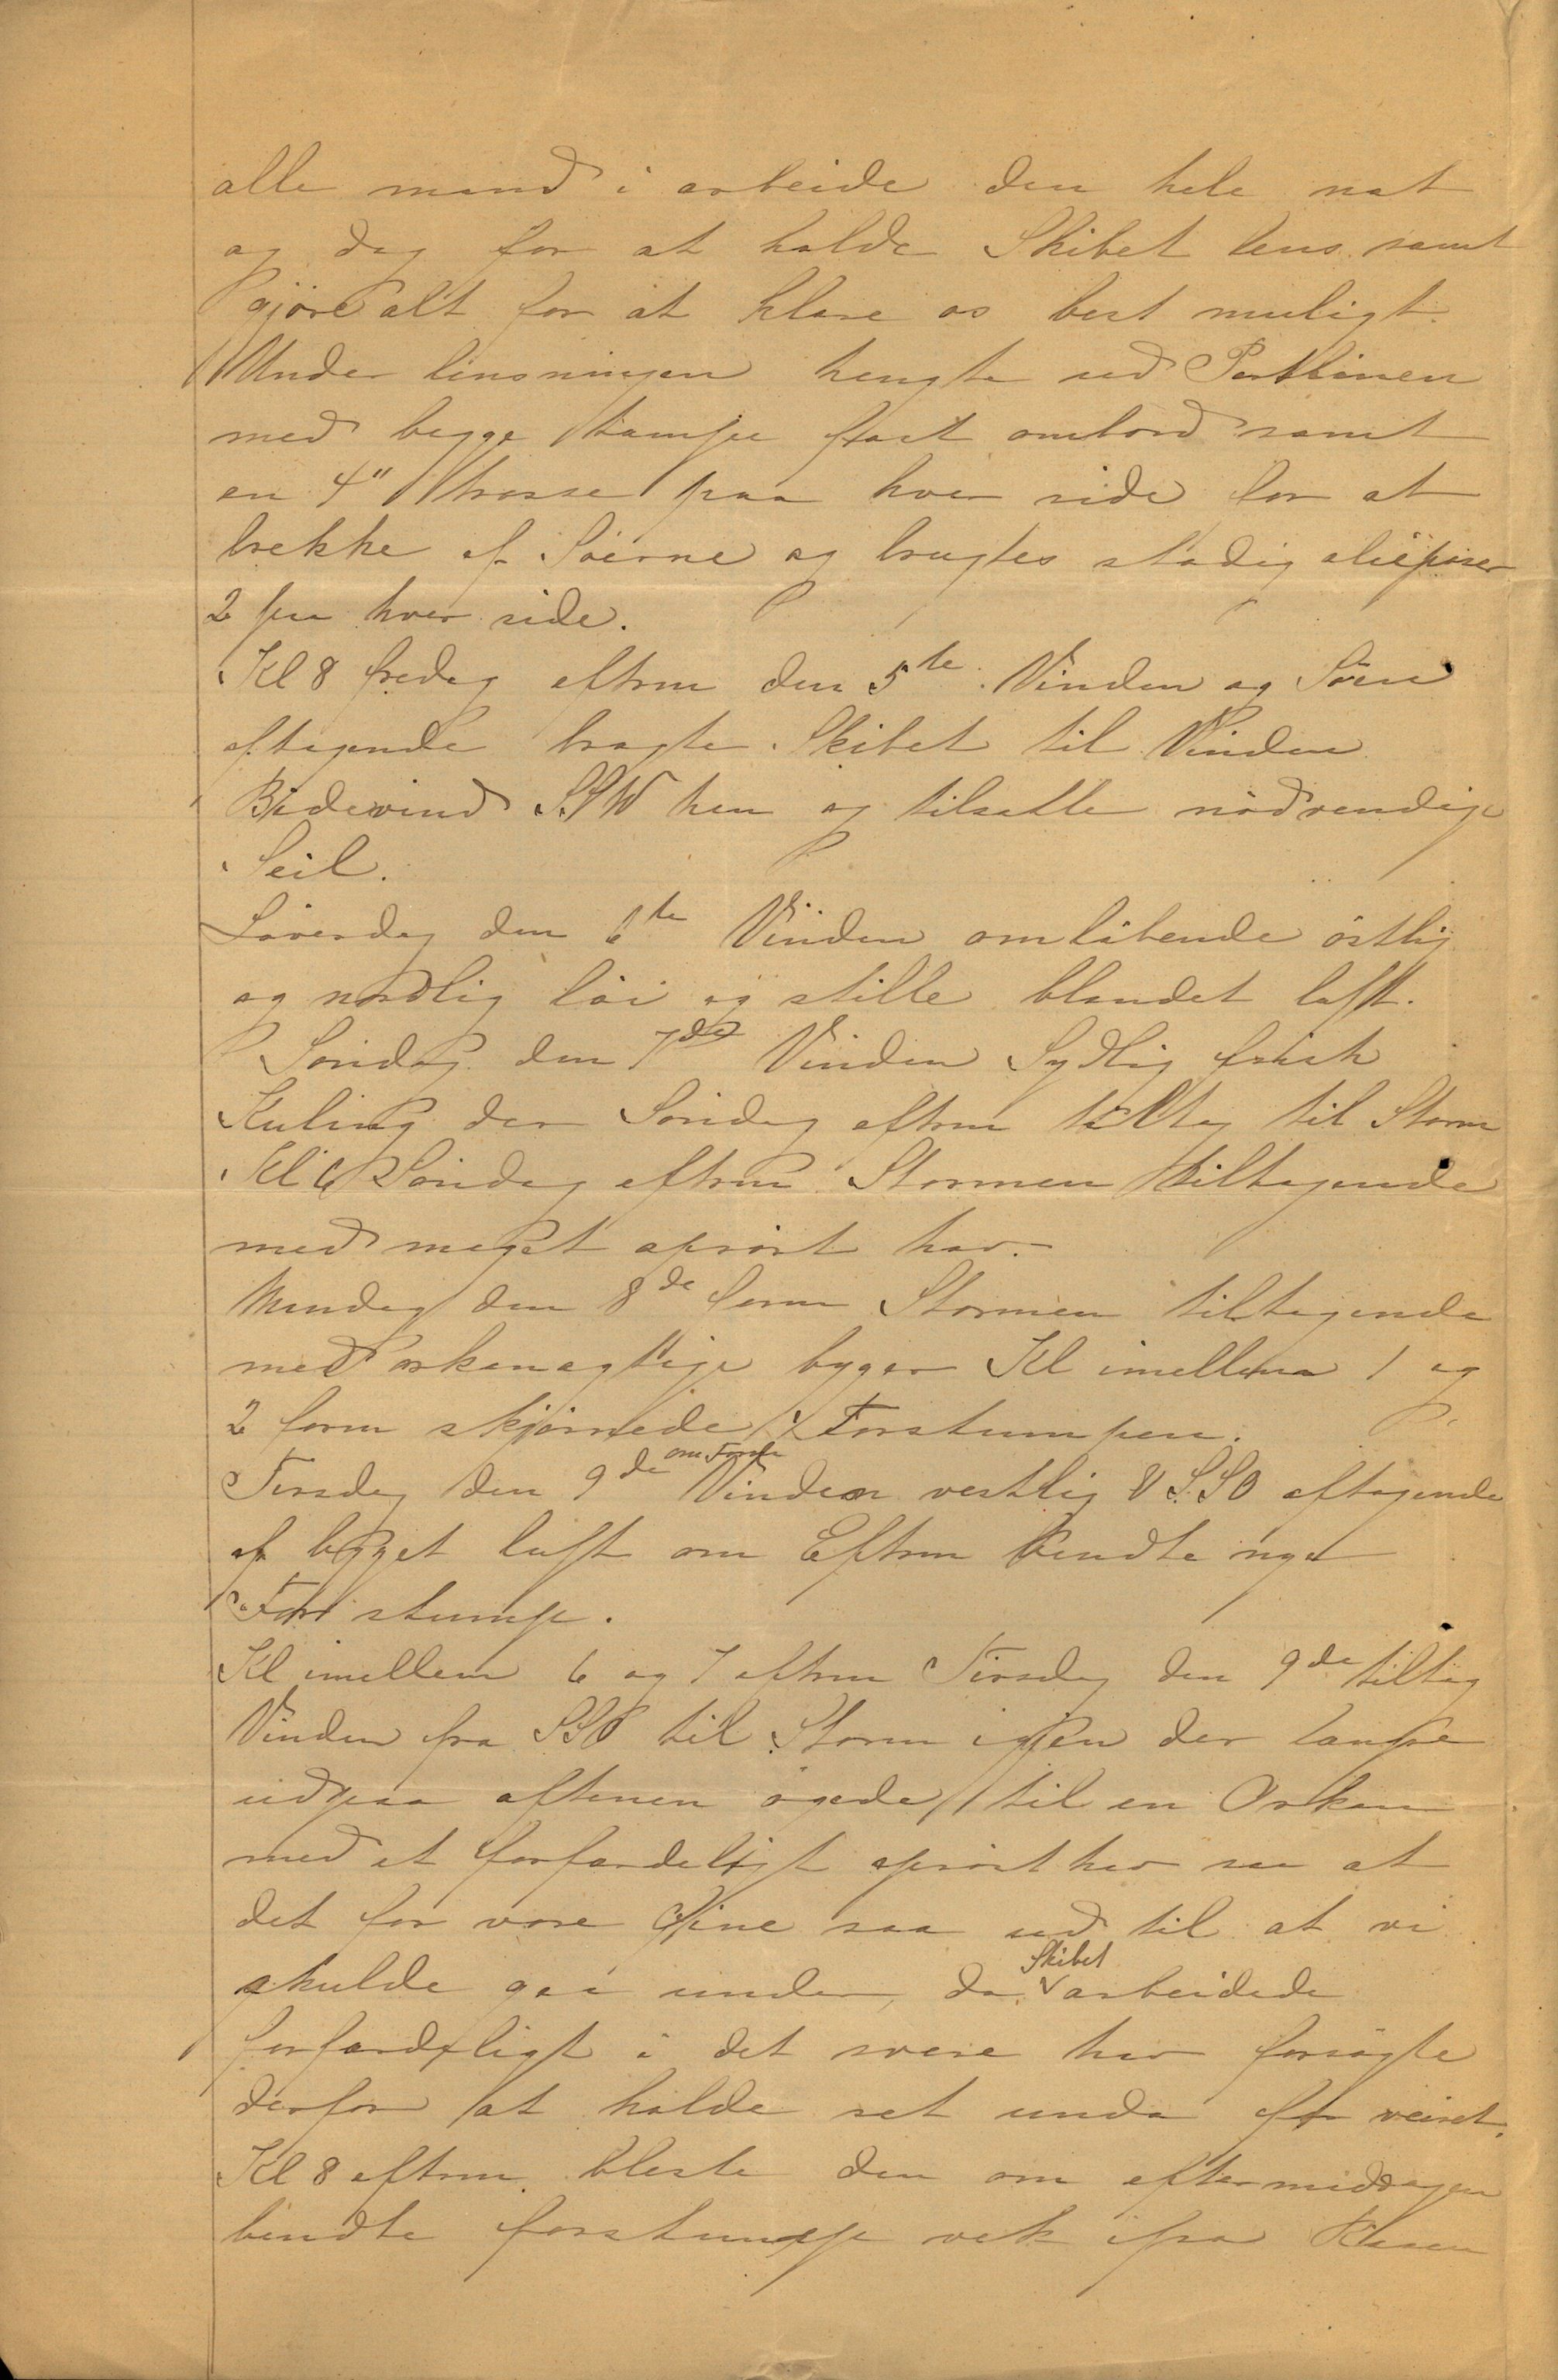 alle mand i arbeide den hele nat
og dag for at holde Skibet lens samt
gjöre alt for at klare os best muligt.
Under lensningen hengte ud Pertlinen
med begge tampe fast ombord samt
en 4" trosse paa hver side for at
brekke af Söerne og brugtes stadig olieposer
2 paa hver side.
Kl 8 fredag eftrm den 5te Vinden og Söen
aftagende bragte Skibet til Vinden
Bidevind SSW hen og tilsatte nödvendige
Seil.
Löverdag den 6te Vinden omlöbende östlig
og nordlig löi og stille blandet luft.
Söndag den 7de Vinden Sydlig frisk
Kuling der Söndag eftrm tiltog til Storm
Kl 6 Söndag eftrm Stormen tiltagende
med meget oprört hav.
Mandag den 8de form Stormen tiltagende
med orkanagtige byger Kl imellem 1 og
2 form skjörnede Forstumpen.
om Form
Tirsdag den 9de Vinden vestlig V S.SO aftagende
af bygget luft om Eftrm bendte nye
For stump.
Kl imellem 6 og 7 eftrm Tirsdag den 9de tiltog
Vinden fra SSO til Storm igjen der
udpaa aftenen ögede til en Orkan
med et forfærdeligt oprört hav saa at
det for vore Öine saa ud til at vi
Skibet
skulde gaa under, da arbeidede
forfærdeligt i det svere hav forsögte
derfor at holde ret unda for veiret.
Kl 8 eftrm bleste den om eftermiddagen
bendte forstump vek ifra Raaen